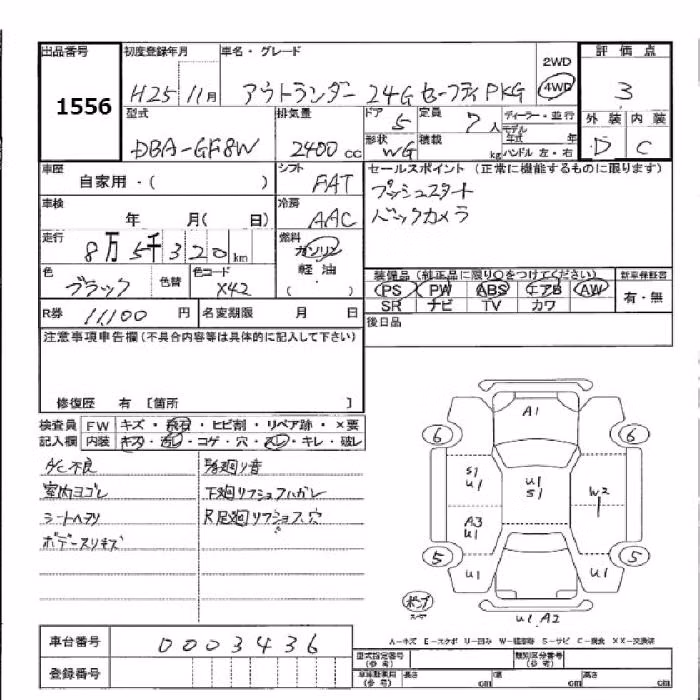 出品番号 初度登録年月 車名・グレード 2WD 評価点
1556 H25 11月 アウトランダー 24G セーフティPKG 4WD 3
型式 排気量 ドア 5 定員 7人 ディーラー・並行 外装 内装
DBA-GF8W 2400cc 形状 WG 積載 kg モデル年式 年 ハンドル 左・右 D C
車歴 自家用・( ) シフト FAT セールスポイント (正常に機能するものに限ります)
プッシュスタート
車検 年 月( 日) 冷房 AAC バックカメラ
走行 8万5千320km 燃料 ガソリン
軽油
( )
色 ブラック 色替 色コード X42
装備品 (純正品に限り○をつけてください) 新車保証書
PS PW ABS エアB AW 有・無
SR ナビ TV カワ
R券 11,100円 名変期限 月 日 後日品
注意事項申告欄(不具合内容等は具体的に記入して下さい)
修復歴 有 [箇所 ]
検査員 FW キズ・飛石・ヒビ割・リペア跡・×要
記入欄 内装 キズ・汚レ・コゲ・穴・スレ・キレ・破レ
A/C不良
室内ヨゴレ
シートヘタリ
ボデースリキズ
下廻リ
A1
6 6
S1
U1 U1
S1 W2
A3
U1
5 5
U1 U1
U1 A2
A-キズ E-エクボ U-凹み W-補修跡 S-サビ C-腐食 XX-交換済
車台番号 0003436
型式指定番号 (参考) 類別区分番号 (参考)
登録番号 長さ cm 幅 cm 高さ cm